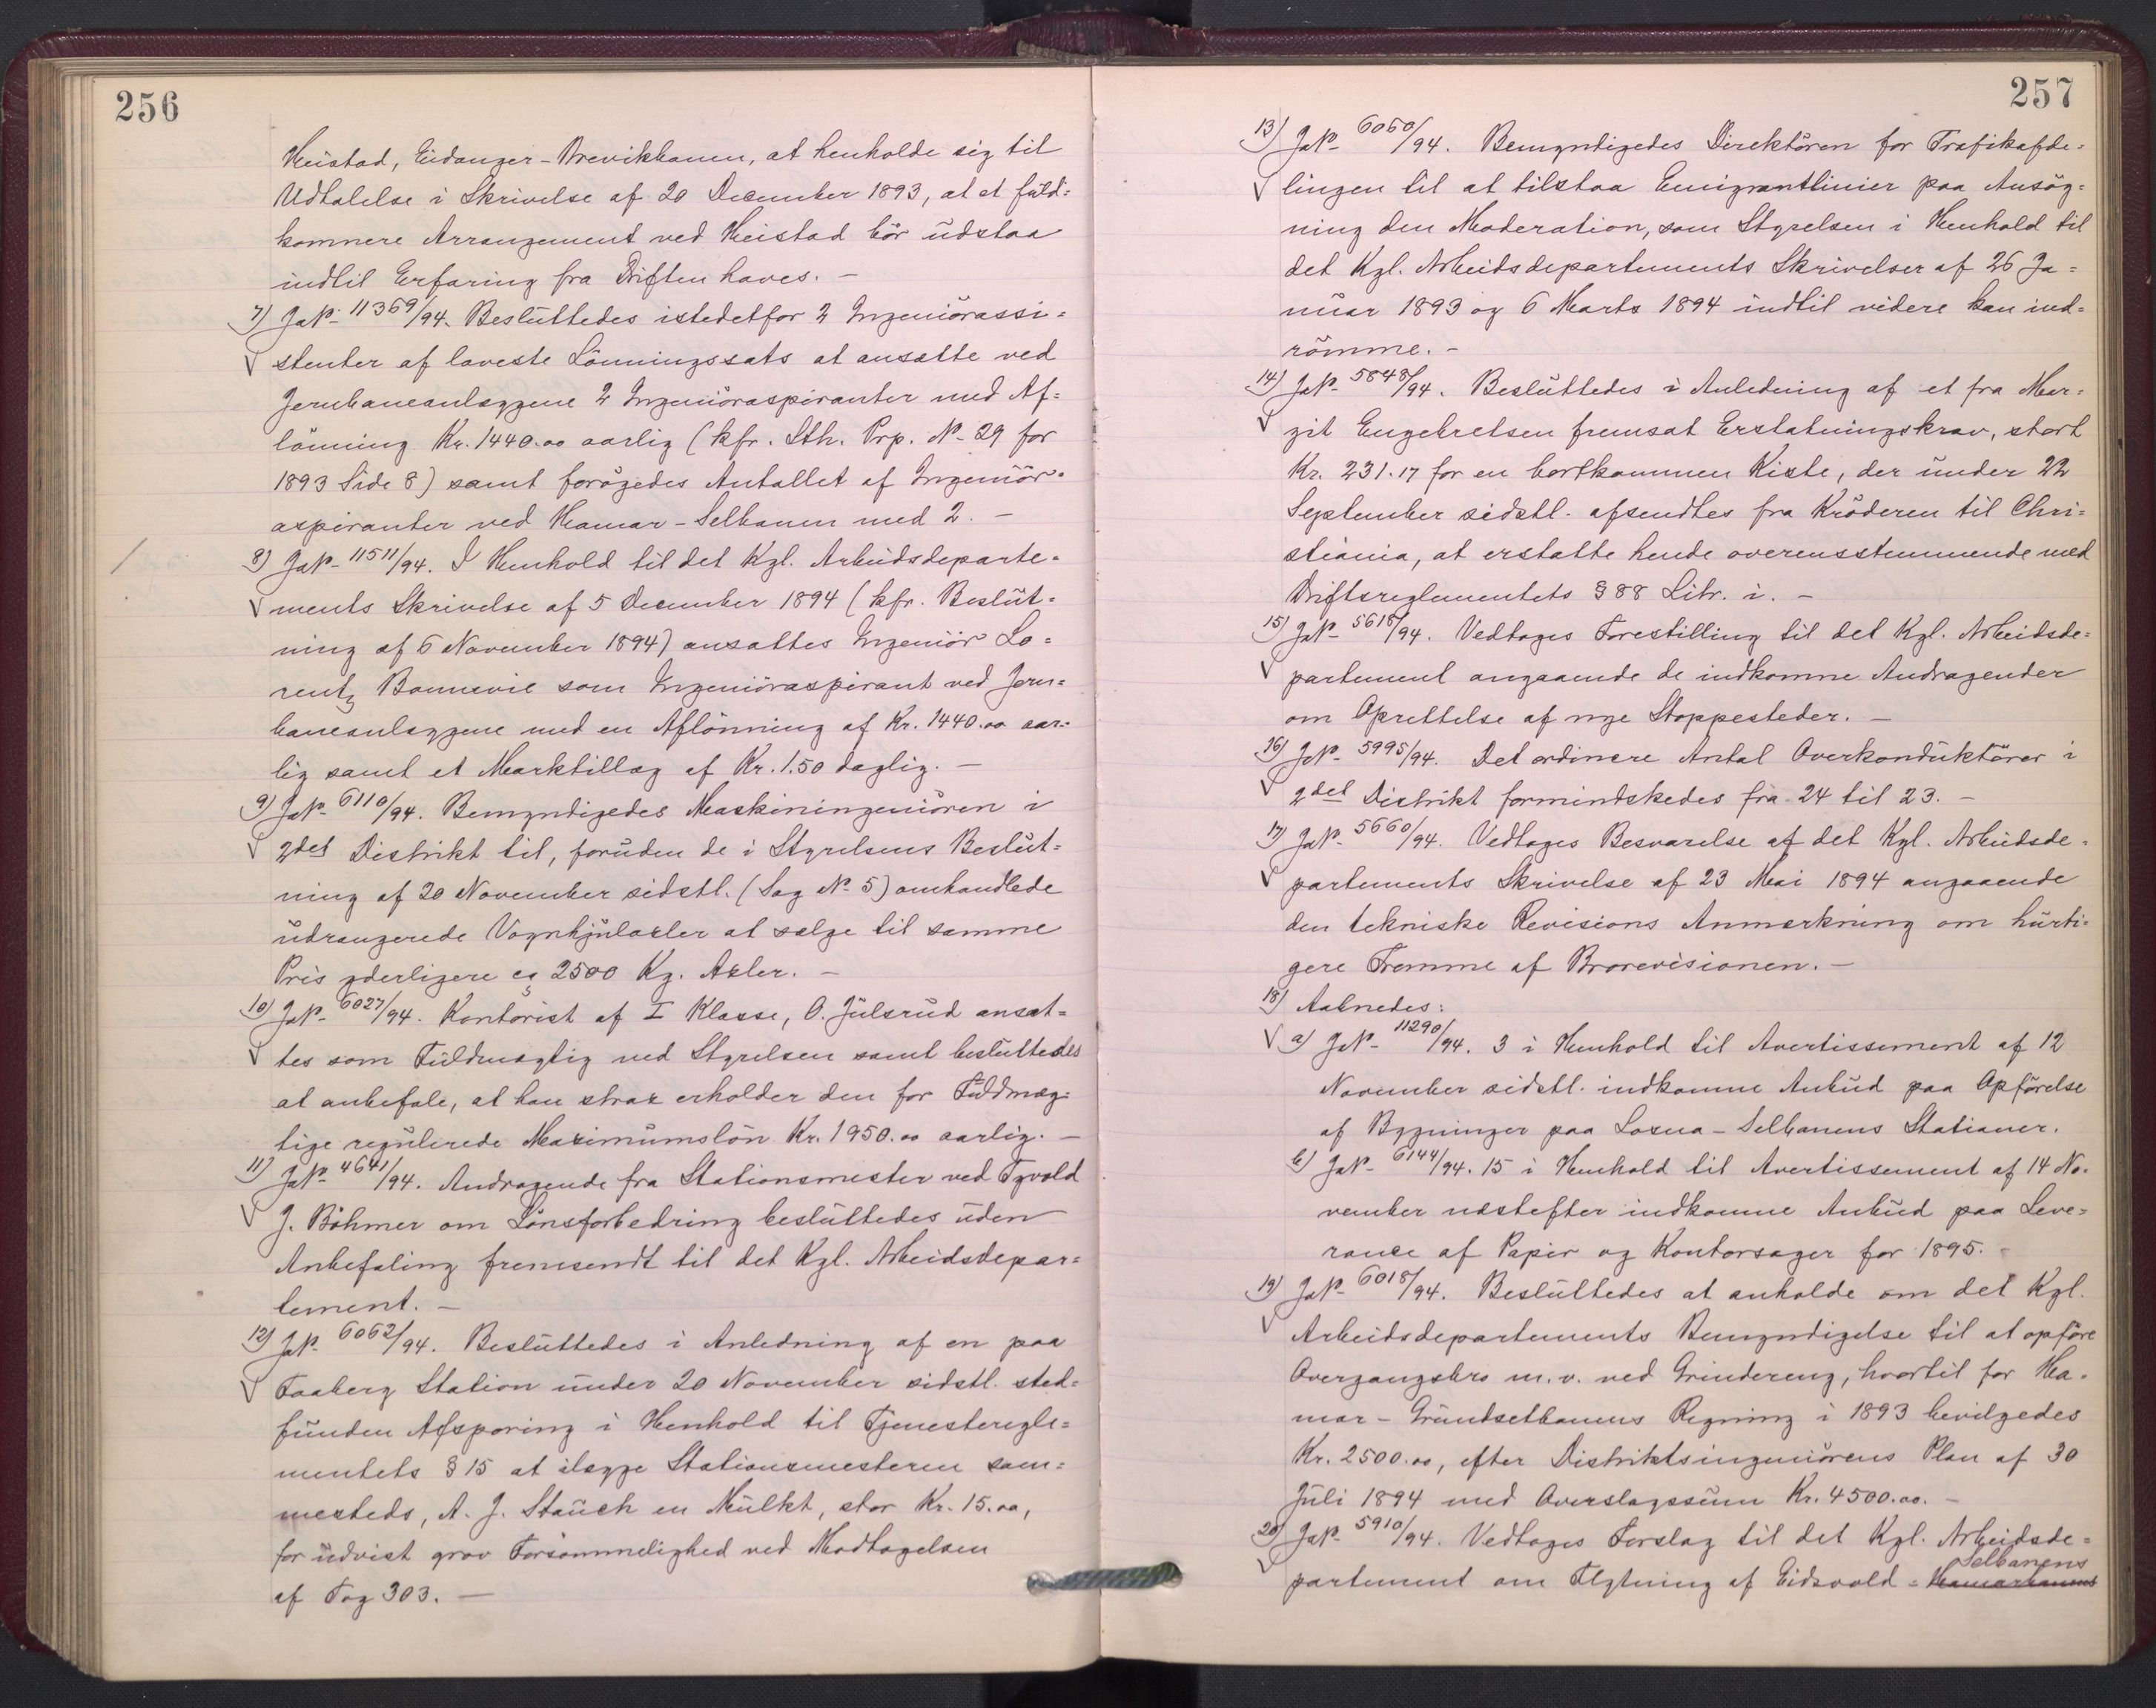 256
Heistad, Eidanger-Brevikbanen, at henholde sig til
Udtalelse i Skrivelse af 20 December 1893, at et fuld=
komnere Arrangement ved Heistad bör udstaa
indtil Erfaring fra Driften haves. —
7) JN- 11369/94. Besluttedes istedetfor 2 Ingeniörassi=
√ stenter af laveste Lönningssats at ansætte ved
Jernbaneanlæggene 2 Ingeniöraspiranter med Af=
lönning Kr. 1440.00 aarlig (kfr. Sth. Prp. N- 29 for
1893 Side 8) samt forögedes Antallet af Ingeniör=
aspiranter ved Hamar-Selbanen med 2. —
8) JN- 11511/94. I Henhold til det Kgl. Arbeidsdeparte=
√ ments Skrivelse af 5 December 1894 (kfr. Beslut=
ning af 6 November 1894) ansattes Ingeniör Lo=
rentz Bonnevie som Ingeniöraspirant ved Jern=
baneanlæggene med en Aflönning af Kr. 1440.00 aar=
lig samt et Marktillæg af Kr. 1.50 daglig. —
9) JN- 6110/94. Bemyndigedes Maskiningeniören i
√ 2det Distrikt til, foruden de i Styrelsens Beslut=
ning af 20 November sidstl. (Sag N- 5) omhandlede
udrangerede Vognhjulaxler at sælge til samme
Pris yderligere ca 2500 Kg. Axler. —
10) JN- 6027/94. Kontorist af I Klasse, O. Julsrud ansat=
√ tes som Fuldmægtig ved Styrelsen samt besluttedes
at anbefale, at han strax erholder den for Fuldmæg=
tige regulerede Maximumslön Kr. 1950.00 aarlig. —
11) JN- 4641/94. Andragende fra Stationsmester ved Tyvold
√ J. Böhmer om Lönsforbedring besluttedes uden
Anbefaling fremsendt til det Kgl. Arbeidsdepar=
tement. —
12) JN- 6062/94. Besluttedes i Anledning af en paa
√ Faaberg Station under 20 November sidstl. sted=
funden Afsporing i Henhold til Tjenesteregle=
mentets § 15 at ilægge Stationsmesteren sam=
mesteds, A. J. Stauch en Mulkt, stor Kr. 15.00,
for udvist grov Forsömmelighed ved Modtagelsen
af Tog 303. —
257
13) JN- 6050/94. Bemyndigedes Direktören for Trafikafde=
√ lingen til at tilstaa Emigrantlinier paa Ansög=
ning den Moderation, som Styrelsen i Henhold til
det Kgl. Arbeidsdepartements Skrivelser af 26 Ja=
nuar 1893 og 6 Marts 1894 indtil videre kan ind=
römme. —
14) JN- 5848/94. Besluttedes i Anledning af et fra Mar=
√ git Engebretsen fremsat Erstatningskrav, stort
Kr. 231.17 for en bortkommen Kiste, der under 22
September sidstl. afsendtes fra Kröderen til Chri=
stiania, at erstatte hende overensstemmende med
Driftsreglementets § 88 Litr. i. —
15) JN- 5618/94. Vedtoges Forestilling til det Kgl. Arbeidsde=
√ partement angaaende de indkomne Andragender
om Oprettelse af nye Stoppesteder. —
16) JN- 5995/94. Det ordinære Antal Overkonduktörer i
√ 2det Distrikt formindskedes fra 24 til 23. —
17) JN- 5660/94. Vedtoges Besvarelse af det Kgl. Arbeidsde=
√ partements Skrivelse af 23 Mai 1894 angaaende
den tekniske Revisions Anmærkning om hurti=
gere Fremme af Brorevisionen. —
18) Aabnedes:
√ a) JN- 11290/94. 3 i Henhold til Avertissement af 12
November sidstl. indkomne Anbud paa Opförelse
af Bygninger paa Losna-Selbanens Stationer.
b) JN- 6144/94. 15 i Henhold til Avertissement af 14 No=
vember næstefter indkomne Anbud paa Leve=
rance af Papir og Kontorsager for 1895. —
19) JN- 6018/94. Besluttedes at anholde om det Kgl.
√ Arbeidsdepartements Bemyndigelse til at opföre
Overgangsbro m.v. ved Grindereng, hvortil for Ha=
mar-Grundsetbanens Regning i 1893 bevilgedes
Kr. 2500.00, efter Distriktsingeniörens Plan af 30
Juli 1894 med Overslagssum Kr. 4500.00. —
20) JN- 5910/94. Vedtoges Forslag til det Kgl. Arbeidsde=
Selbanens
√ partement om Flytning af Eidsvold-Hamarbanens